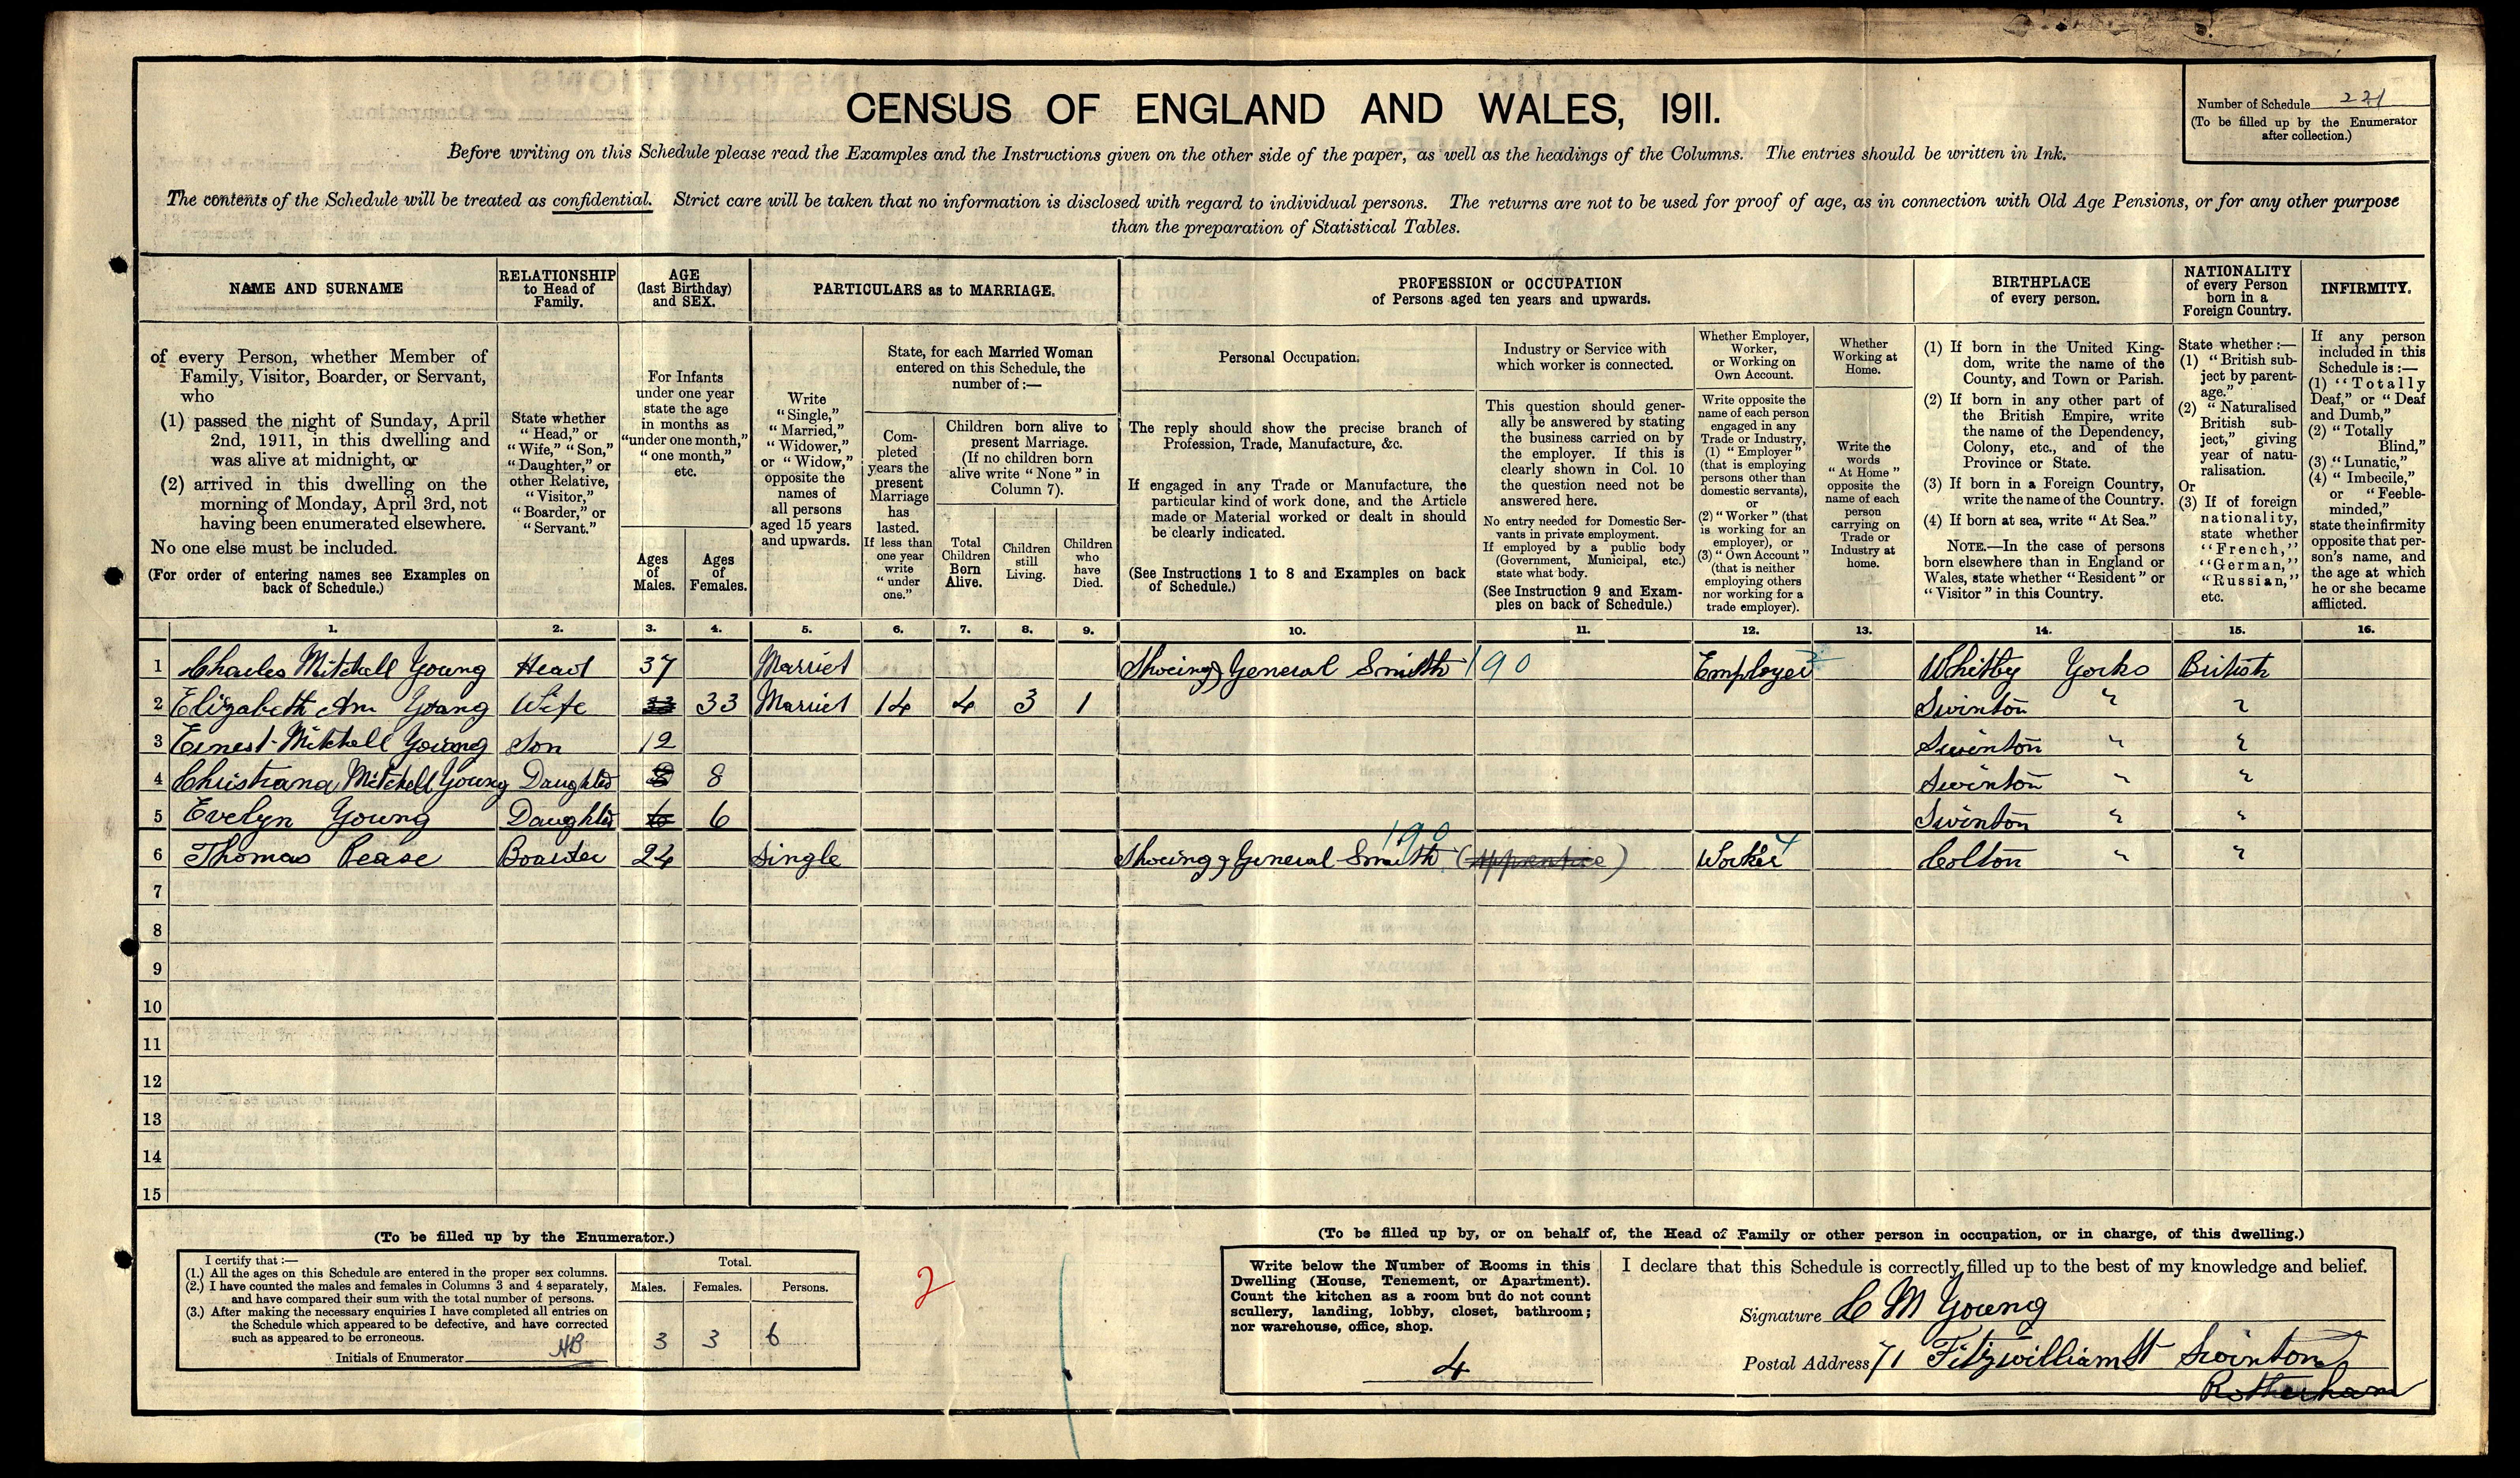 CENSUS OF ENGLAND AND WALES, 1911.
Number of Schedule 221
(To be filled up by the Enumerator
after collection.)
Before writing on this Schedule please read the Examples and the Instructions given on the other side of the paper, as well as the headings of the Columns. The entries should be written in Ink.
The contents of the Schedule will be treated as confidential. Strict care will be taken that no information is disclosed with regard to individual persons. The returns are not to be used for proof of age, as in connection with Old Age Pensions, or for any other purpose
than the preparation of Statistical Tables.
NAME AND SURNAME
of every Person, whether Member of
Family, Visitor, Boarder, or Servant,
who
(1) passed the night of Sunday, April
2nd, 1911, in this dwelling and
was alive at midnight, or
(2) arrived in this dwelling on the
morning of Monday, April 3rd, not
having been enumerated elsewhere.
No one else must be included.
(For order of entering names see Examples on
back of Schedule.)
RELATIONSHIP
to Head of
Family.
State whether
"Head," or
"Wife," "Son,"
"Daughter," or
other Relative,
"Visitor,"
"Boarder," or
"Servant."
AGE
(last Birthday)
and SEX.
For Infants
under one year
state the age
in months as
"under one month,"
"one month,"
etc.
Ages
of
Males.
Ages
of
Females.
PARTICULARS as to MARRIAGE.
Write
"Single,"
"Married,"
"Widower,"
or "Widow,"
opposite the
names of
all persons
aged 15 years
and upwards.
State, for each Married Woman
entered on this Schedule, the
number of:—
Com-
pleted
years the
present
Marriage
has
lasted.
If less than
one year
write
"under
one."
Children born alive to
present Marriage.
(If no children born
alive write "None" in
Column 7).
Total
Children
Born
Alive.
Children
still
Living.
Children
who
have
Died.
PROFESSION or OCCUPATION
of Persons aged ten years and upwards.
Personal Occupation.
The reply should show the precise branch of
Profession, Trade, Manufacture, &c.
If engaged in any Trade or Manufacture, the
particular kind of work done, and the Article
made or Material worked or dealt in should
be clearly indicated.
(See Instructions 1 to 8 and Examples on back
of Schedule.)
Industry or Service with
which worker is connected.
This question should gener-
ally be answered by stating
the business carried on by
the employer. If this is
clearly shown in Col. 10
the question need not be
answered here.
No entry needed for Domestic Ser-
vants in private employment.
If employed by a public body
(Government, Municipal, etc.)
state what body.
(See Instruction 9 and Exam-
ples on back of Schedule.)
Whether Employer,
Worker,
or Working on
Own Account.
Write opposite the
name of each person
engaged in any
Trade or Industry,
(1) "Employer"
(that is employing
persons other than
domestic servants),
or
(2) "Worker" (that
is working for an
employer), or
(3) "Own Account"
(that is neither
employing others
nor working for a
trade employer).
Whether
Working at
Home.
Write the
words
"At Home"
opposite the
name of each
person
carrying on
Trade or
Industry at
home.
BIRTHPLACE
of every person.
(1) If born in the United King-
dom, write the name of the
County, and Town or Parish.
(2) If born in any other part of
the British Empire, write
the name of the Dependency,
Colony, etc., and of the
Province or State.
(3) If born in a Foreign Country,
write the name of the Country.
(4) If born at sea, write "At Sea."
NOTE.—In the case of persons
born elsewhere than in England or
Wales, state whether "Resident" or
"Visitor" in this Country.
NATIONALITY
of every Person
born in a
Foreign Country.
State whether:—
(1) "British sub-
ject by parent-
age."
(2) "Naturalised
British sub-
ject," giving
year of natu-
ralisation.
Or
(3) If of foreign
nationality,
state whether
"French,"
"German,"
"Russian,"
etc.
INFIRMITY.
If any person
included in this
Schedule is:—
(1) "Totally
Deaf," or "Deaf
and Dumb,"
(2) "Totally
Blind,"
(3) "Lunatic,"
(4) "Imbecile,"
or "Feeble-
minded,"
state the infirmity
opposite that per-
son's name, and
the age at which
he or she became
afflicted.
1. 2. 3. 4. 5. 6. 7. 8. 9. 10. 11. 12. 13. 14. 15. 16.
1 Charles Mitchell Young Head 37 Married Shoeing & General Smith 190 Employer Whitby Yorks British
2 Elizabeth Ann Young Wife 33 33 Married 14 4 3 1 Swinton " "
3 Ernest Mitchell Young Son 12 Swinton " "
4 Christiana Mitchell Young Daughter 8 8 Swinton " "
5 Evelyn Young Daughter 6 6 Swinton " "
6 Thomas Pease Boarder 24 Single Shoeing & General Smith 190 (Apprentice) Worker 4 Colton " "
7
8
9
10
11
12
13
14
15
(To be filled up by the Enumerator.)
I certify that:—
(1.) All the ages on this Schedule are entered in the proper sex columns.
(2.) I have counted the males and females in Columns 3 and 4 separately,
and have compared their sum with the total number of persons.
(3.) After making the necessary enquiries I have completed all entries on
the Schedule which appeared to be defective, and have corrected
such as appeared to be erroneous.
Initials of Enumerator
Total.
Males. Females. Persons.
3 3 6
2
(To be filled up by, or on behalf of, the Head of Family or other person in occupation, or in charge, of this dwelling.)
Write below the Number of Rooms in this
Dwelling (House, Tenement, or Apartment).
Count the kitchen as a room but do not count
scullery, landing, lobby, closet, bathroom;
nor warehouse, office, shop.
4
I declare that this Schedule is correctly filled up to the best of my knowledge and belief.
Signature C M Young
Postal Address 71 Fitzwilliam St Swinton
Rotherham